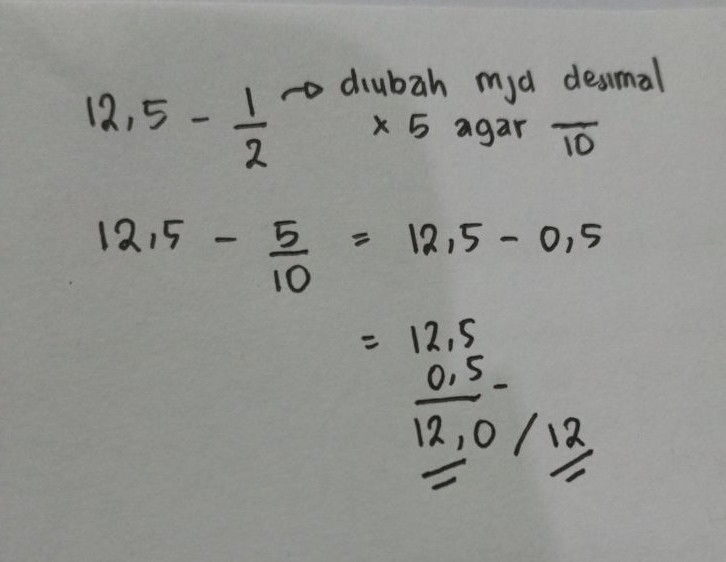 12,5 - 1/2 → diubah mjd desimal
× 5 agar /10
12,5 - 5/10 = 12,5 - 0,5
= 12,5
0,5 -
12,0 / 12